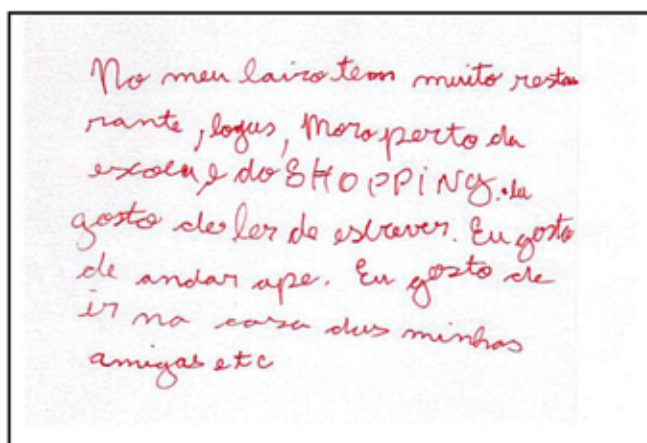 No meu lairo tem muito resta
rante, logus, Moro perto da
escola, e do SHOPPING. eu
gosto de ler de escrever. Eu gosto
de andar ape. Eu gosto de
ir na casa das minhas
amigas etc